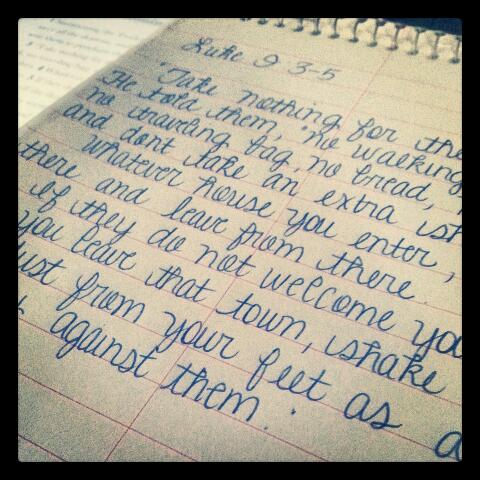 Luke 9 3-5
"Take nothing for the
He told them, "no walking
no traveling bag, no bread,
and dont take an extra ish
whatever house you enter,
there and leave from there.
if they do not welcome you
you leave that town, shake
ust from your feet as a
against them.